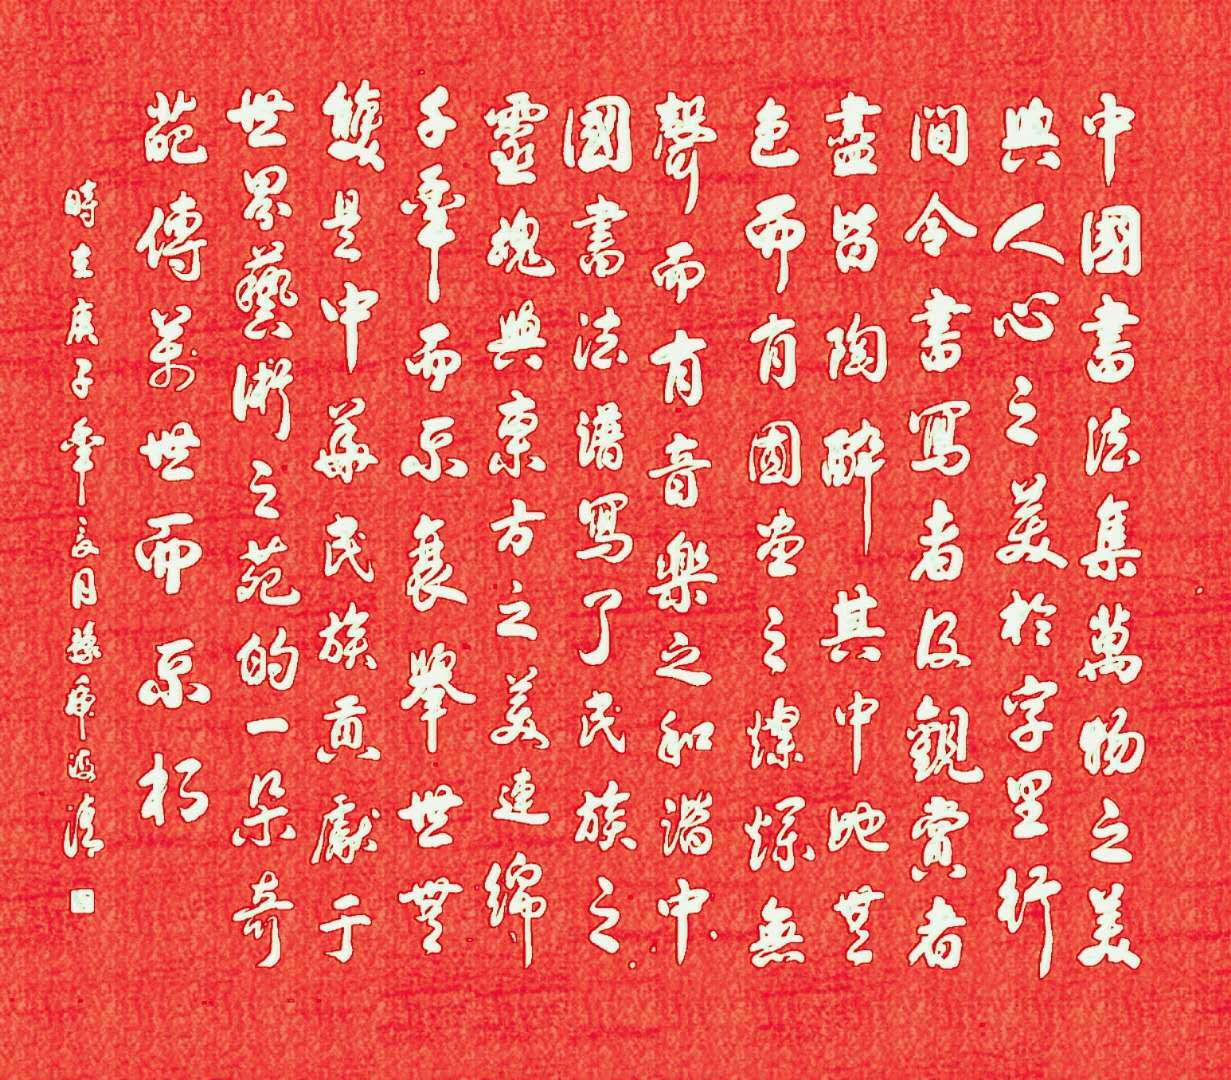 中國書法集萬物之美
與人心之美於字里行
間令書寫者及觀賞者
盡皆陶醉其中無
色而有圖畫之燦爛無
聲而有音樂之和諧中
國書法譜寫了民族之
靈魂與東方之美連綿
千年而不衰舉世無
雙是中華民族貢獻于
世界藝術之苑的一朵奇
葩傳萬世而不朽
時在庚子年月